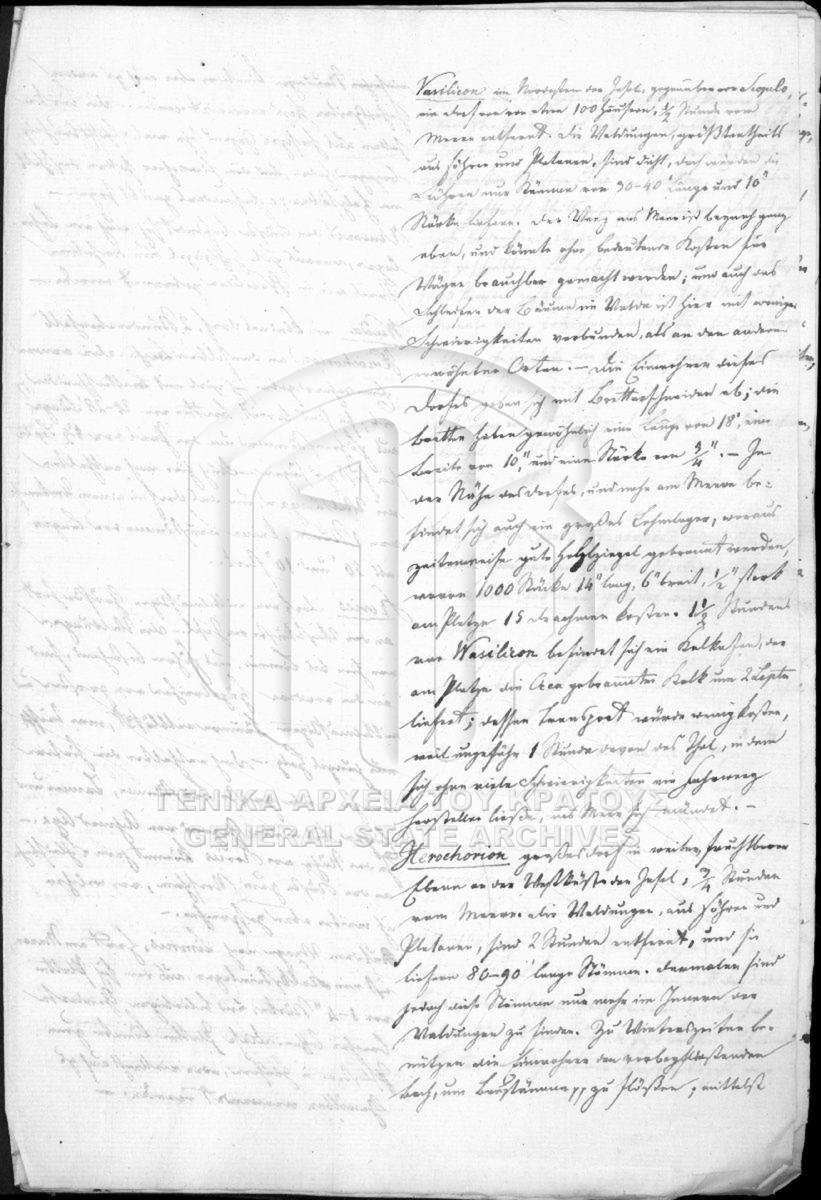 Vasilicon im Nordosten der Insel, gegenüber von Scopelo,
ein Dorf von etwa 100 Häusern, 1/2 Stunde vom
Meere entfernt. Die Waldungen, größtentheils
aus Föhren und Platanen, sind dicht, doch würden die
Föhren nur Stämme von 30-40' Länge und 10"
Stärke liefern. Der Weg ans Meer ist beynah ganz
eben, und könnte ohne bedeutende Kosten für
Wägen brauchbar gemacht werden; und auch das
Schleifen der Bäume im Walde ist hier mit weniger
Schwierigkeiten verbunden, als an den anderen
erwähnten Orten. — Die Einwohner dieses
Dorfes geben sich mit Bretterschneiden ab; die
Bretter haben gewöhnlich eine Länge von 18', eine
Breite von 10", und eine Stärke von 3/4". — In
der Nähe des Dorfes, und mehr am Meere be-
findet sich auch ein großes Lehmlager, woraus
zeitenweise gute Hohlziegel gebrannt werden,
wovon 1000 Stücke 14" lang, 6" breit, 1/2" stark
am Platze 15 Drachmen kosten. 1 1/2 Stunden
von Wasilicon befindet sich ein Kalkofen, der
am Platze die Occa gebrannten Kalk um 2 Lepta
liefert; dessen Transport würde wenig kosten,
weil ungefähr 1 Stunde davon das Thal, in dem
sich ohne viele Schwierigkeiten ein Fahrweg
herstellen ließe, ins Meer sich mündet. —
ΓΕΝΙΚΑ ΑΡΧΕΙΑ ΤΟΥ ΚΡΑΤΟΥΣ
GENERAL STATE ARCHIVES
Xerochorion großes Dorf in weiter, fruchtbarer
Ebene an der Westküste der Insel, 3/4 Stunden
vom Meere. Die Waldungen, aus Föhren und
Platanen, sind 2 Stunden entfernt, und sie
liefern 80-90' lange Stämme. Dermalen sind
jedoch diese Stämme nur mehr im Innern der
Waldungen zu finden. Zu Winterszeiten be-
nützen die Einwohner den vorbeyfließenden
Bach, um Baustämme pp zu flößen; mittelst